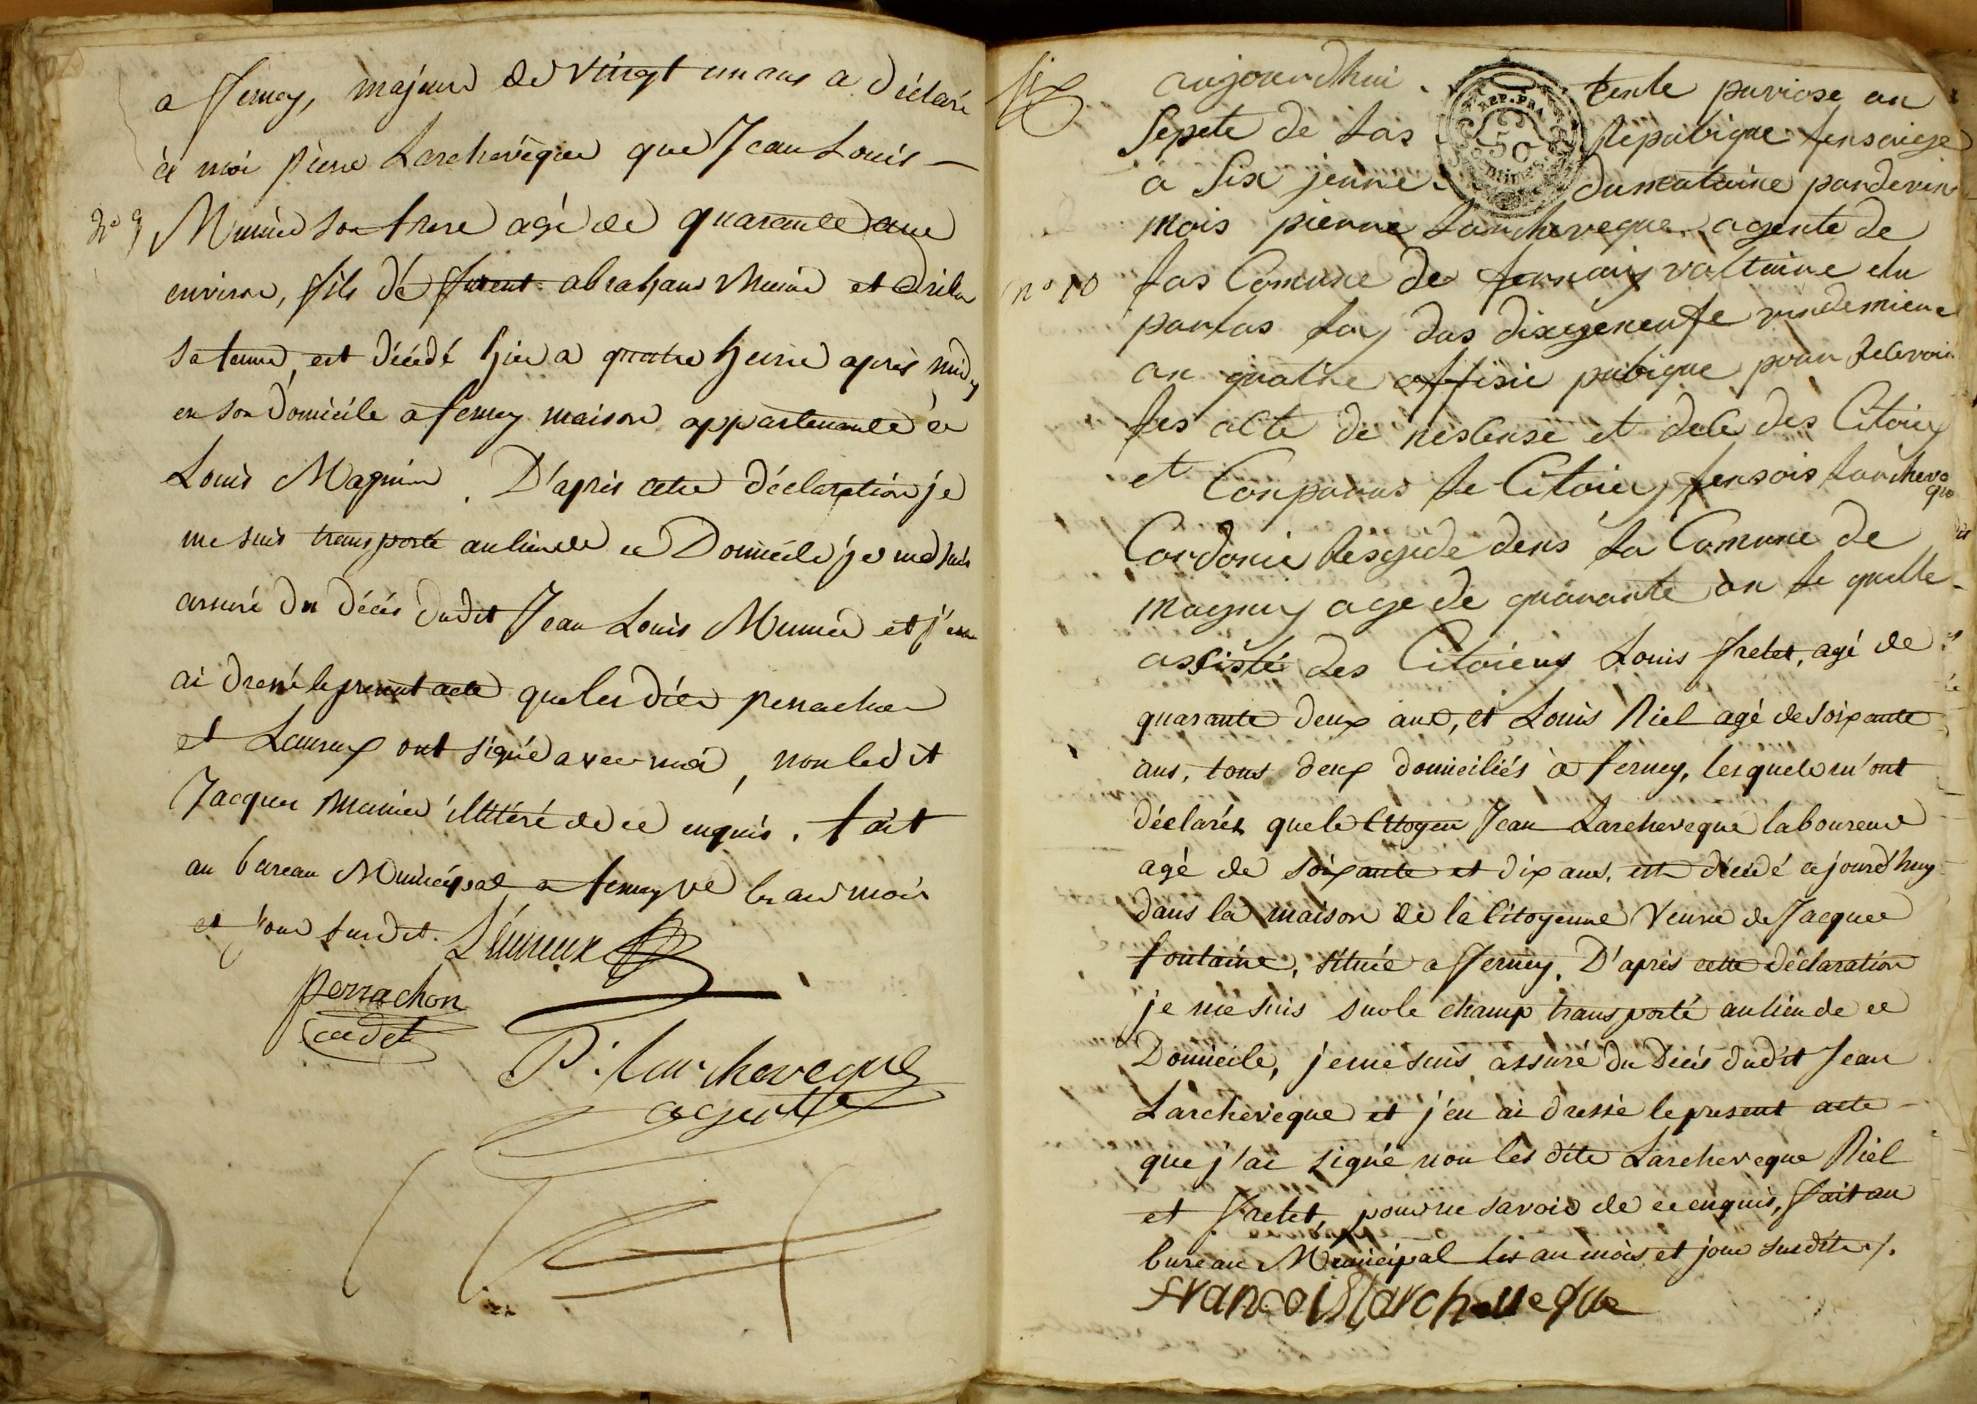 a fferney, majeur de vingt un ans a déclaré
à moi pierre Larchevèque que Jean Louis
n° 9
Munier son frere agé de quarante ans
environ, fils de abraham Munier et
sa femme, est décédé hier a quatre heure après midy
en son domicile a ferney maison appartenante à
Louis Magnin. D'après cette déclaration je
me suis transporté au lieu de ce Domicile je me suis
assuré du décès dudit Jean Louis Munier et j'en
ai dressé le present acte que les dits perrachon
et Leureux ont signé avec moi, non ledit
Jacques Munier illitéré de ce enquis. fait
au bureau Municipal a ferney ve les an mois
et jour susdit. Lureux
perrachon
cadet
P: larcheveque
agente
six
aujourdhui tente puviose an
Sepete de las Repubique fensaiese
a Six jenne. dumataine pardevin
mois pierre larcheveque agente de
n° 10
las Comune de fernaiy valtaire elu
parlas loy das dixeseneufe vindemiere
an quatre offisie pubique pour Relevoir
les acte de neslense et dele des Citoien
et Conparus le Citoien fensois larcheveque
Cordonie Resside dens la Comune de
magny age de quarante an le quelle
assisté des Citoiens Louis fretet, agé de
quarante deux ans, et Louis Riel agé de soixante
ans, tous deux domiciliés à ferney, lesquels m'ont
déclarés que le Citoyen Jean Larcheveque laboureur
agé de soixante et dix ans, est décédé ce jourd'huy
dans la maison de la Citoyenne Veuve de Jacques
fontaine, située a fferney. D'après cette déclaration
je me suis sur le champ transporté au lieu de ce
Domicile, je me suis assuré du Décès dudit Jean
Larcheveque et j'en ai dressé le present acte
que j'ai signé non les dits Larcheveque Riel
et fretet, pour ne savoir de ce enquis, fait au
bureau Municipal les an mois et jour susdits ./.
francois larcheveque
REP. FRA.
50